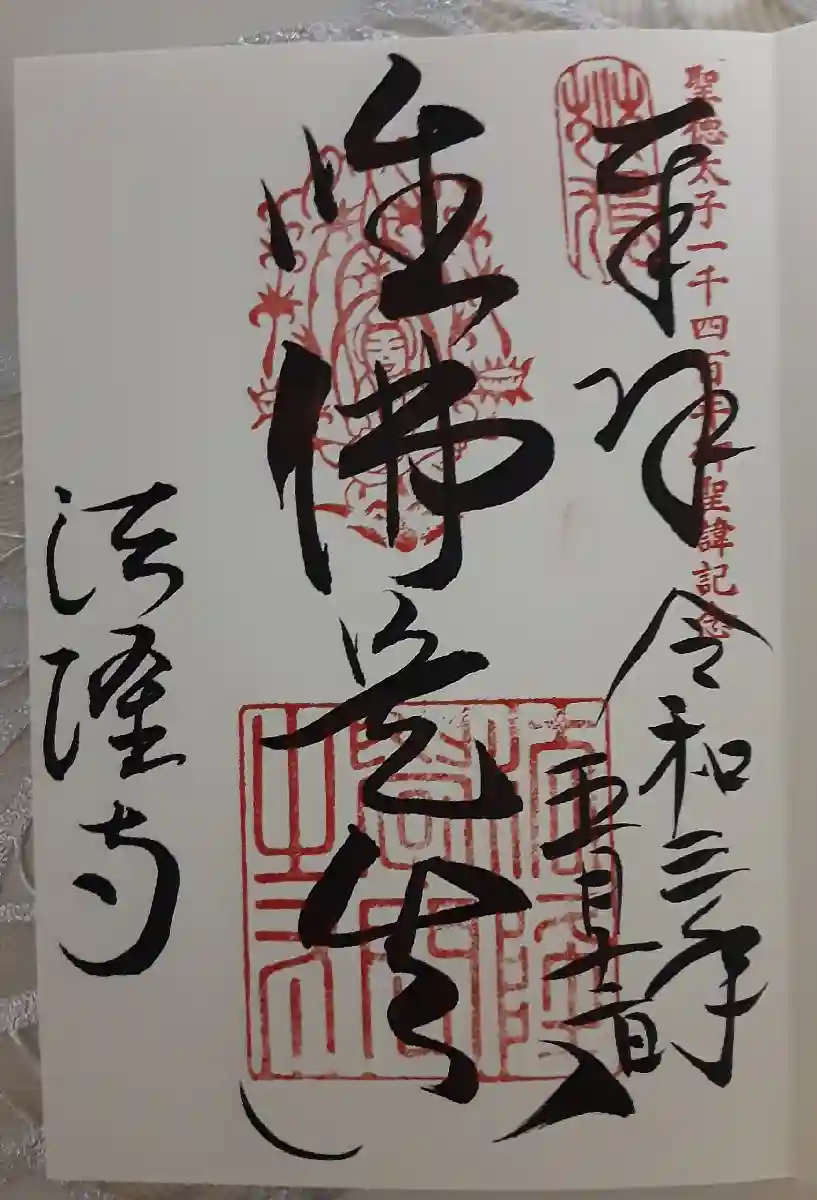 聖徳太子一千四百年御聖諱記念
奉拝
令和三年
五月十二日
唯佛是真
法隆寺